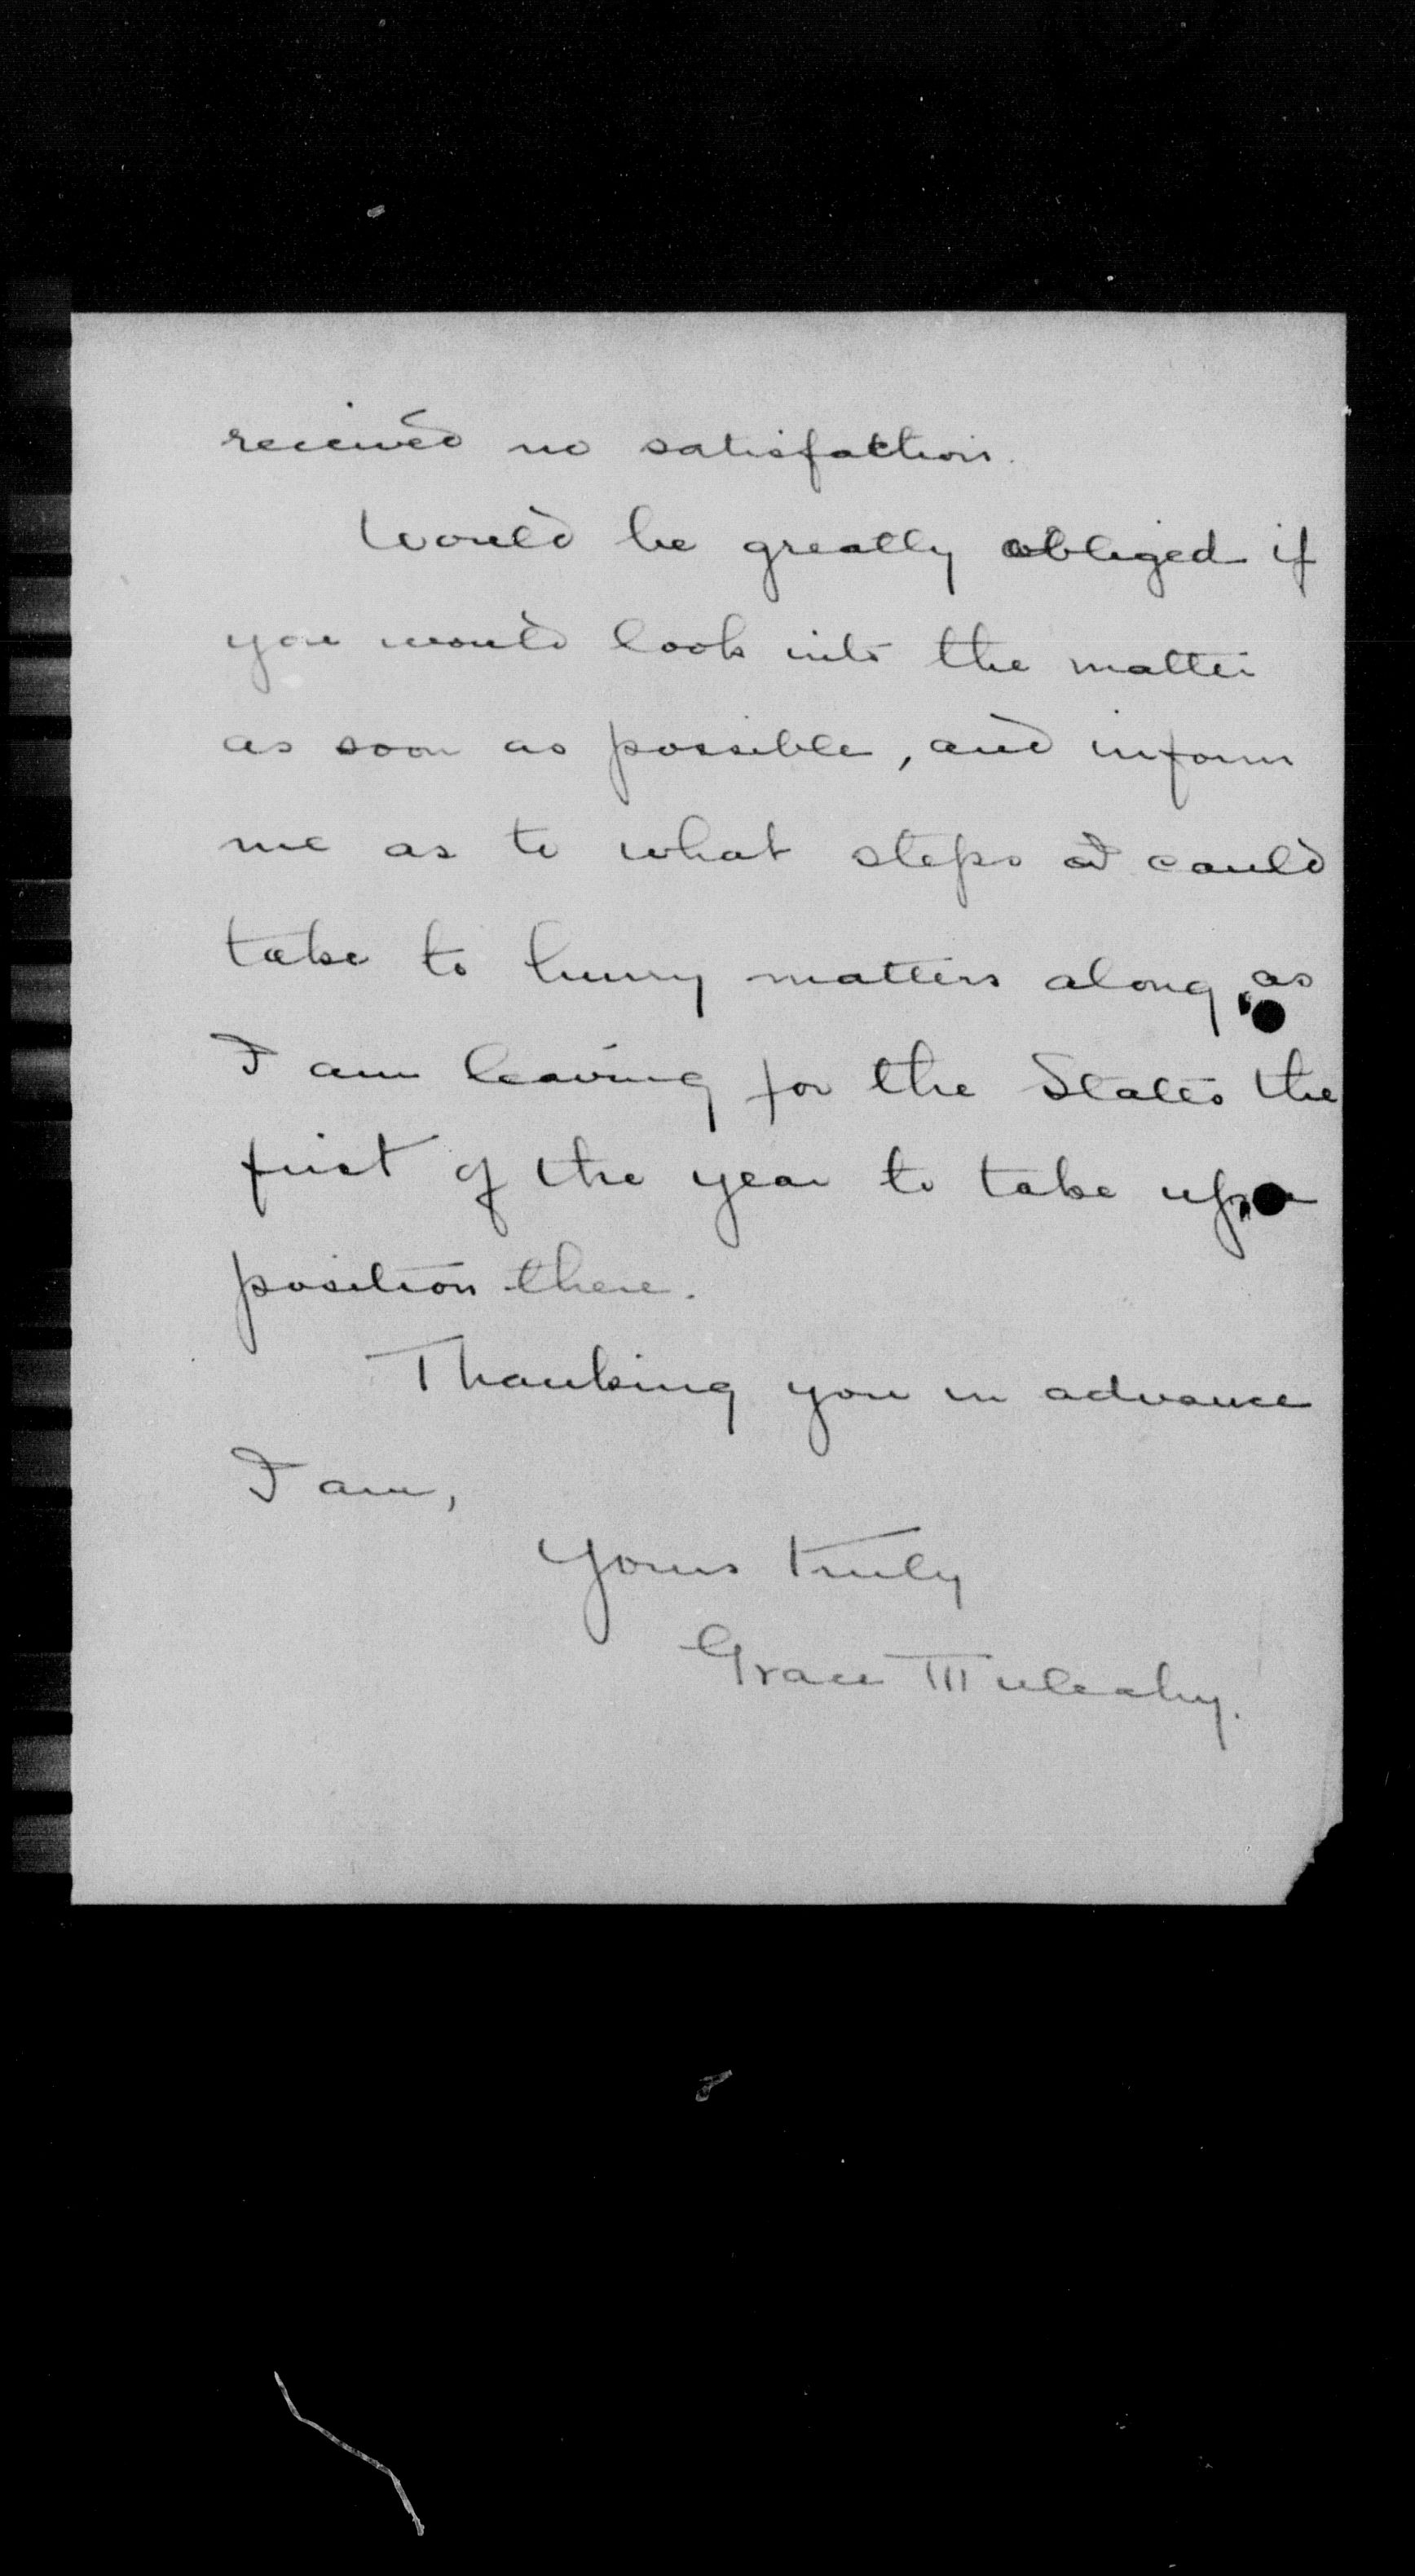 received no satisfaction.
Would be greatly obliged if
you would look into the matter
as soon as possible, and inform
me as to what steps I could
take to hurry matters along, as
I am leaving for the States the
first of the year to take up a
position there.
Thanking you in advance
I am,
Yours truly
Grace Mulcahy.